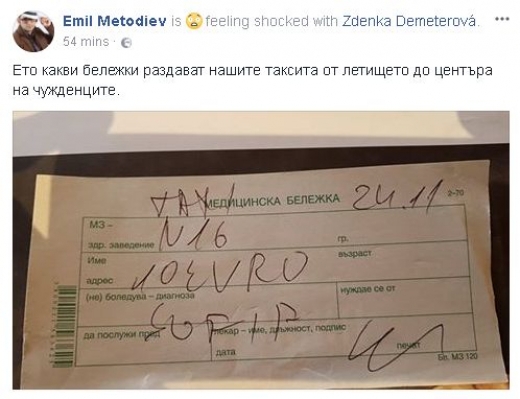 Emil Metodiev is feeling shocked with Zdenka Demeterová.
54 mins ·
Ето какви бележки раздават нашите таксита от летището до центъра
на чужденците.
TAXI МЕДИЦИНСКА БЕЛЕЖКА 24.11 2-70
МЗ –
здр. заведение N16 гр.
Име възраст
адрес 10 EVRO
(не) боледува – диагноза нуждае се от
SOFIA
да послужи пред лекар – име, длъжност, подпис
дата печат
Бл. МЗ 120